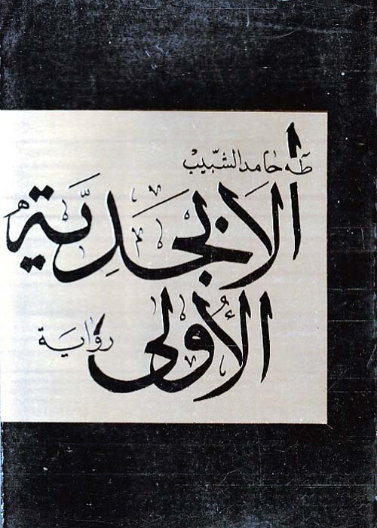 طه حامد الشبيب
الأبجدية
الأولى
رواية